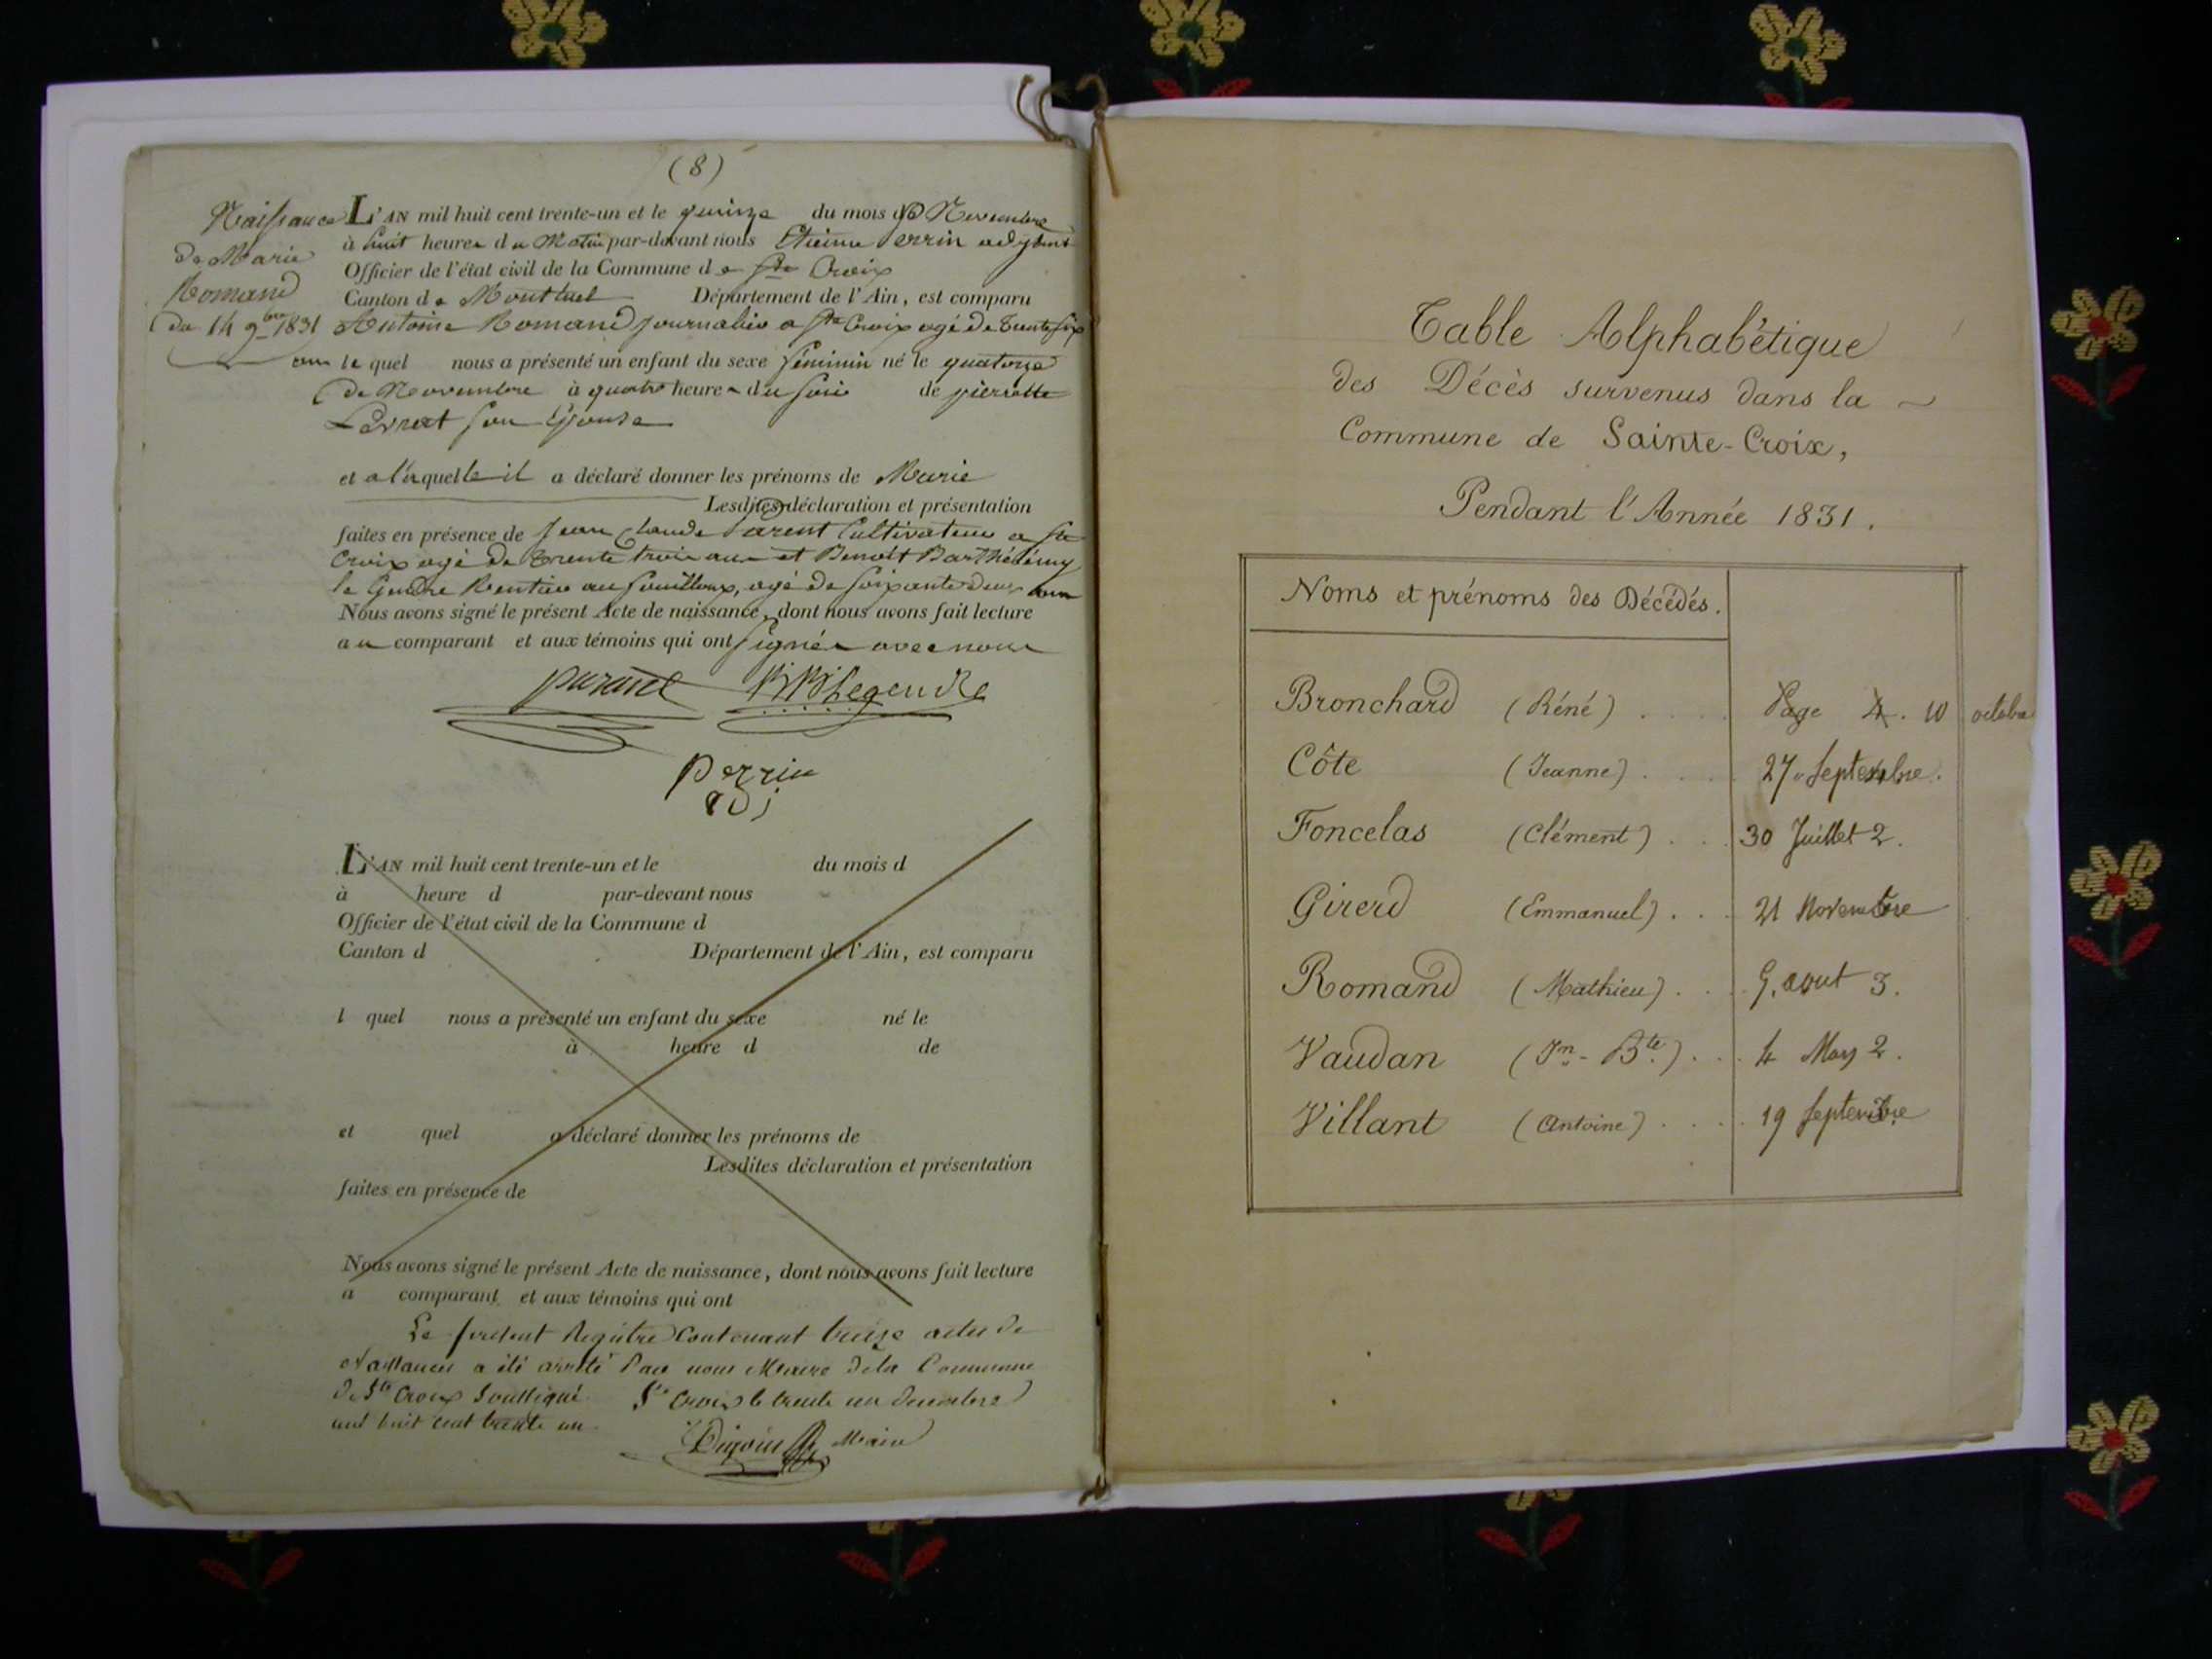 (8)
Naissance
de Marie
Romand
du 14 9bre 1831
L'AN mil huit cent trente-un et le quinze du mois de Novembre
à huit heures du Matin par-devant nous Etienne Perrin adjoint
Officier de l'état civil de la Commune de Ste Croix
Canton de Montluel Département de l'Ain, est comparu
Antoine Romand journalier a Ste Croix agé de trente six
ans le quel nous a présenté un enfant du sexe féminin né le quatorze
de Novembre à quatre heures du soir de pierrette
son Epouse
et a laquelle il a déclaré donner les prénoms de Marie
Lesdites déclaration et présentation
faites en présence de Jean Claude Parent Cultivateur a Ste
Croix agé de trente trois ans et Benoît Barthélémy
le Gendre Rentier au Souilloux, agé de soixante deux ans
Nous avons signé le présent Acte de naissance, dont nous avons fait lecture
au comparant et aux témoins qui ont signés avec nous
parent BBLegendre
Perrin
adj
L'AN mil huit cent trente-un et le du mois d
à heure d par-devant nous
Officier de l'état civil de la Commune d
Canton d Département de l'Ain, est comparu
l quel nous a présenté un enfant du sexe né le
à heure d de
et quel a déclaré donner les prénoms de
Lesdites déclaration et présentation
faites en présence de
Nous avons signé le présent Acte de naissance, dont nous avons fait lecture
a comparant et aux témoins qui ont
Le présent Registre Contenant treize actes de
Naissances a été arrêté Par nous Maire de la Commune
de Ste Croix Soussigné. Ste Croix le trente un decembre
mil huit cent trente un.
Maire
Table Alphabétique
des Décès survenus dans la
Commune de Sainte-Croix,
Pendant l'Année 1831.
Noms et prénoms des Décédés.
Bronchard (Réné) .... Page 4. 10 octobre
Côte (Jeanne) .... 27 Septembre.
Foncelas (Clément) ... 30 Juillet 2.
Girerd (Emmanuel) ... 21 Novembre
Romand (Mathieu) ... 9. aout 3.
Vaudan (Jn - Bte) ... 4 May 2.
Villant (Antoine) .... 19 Septembre